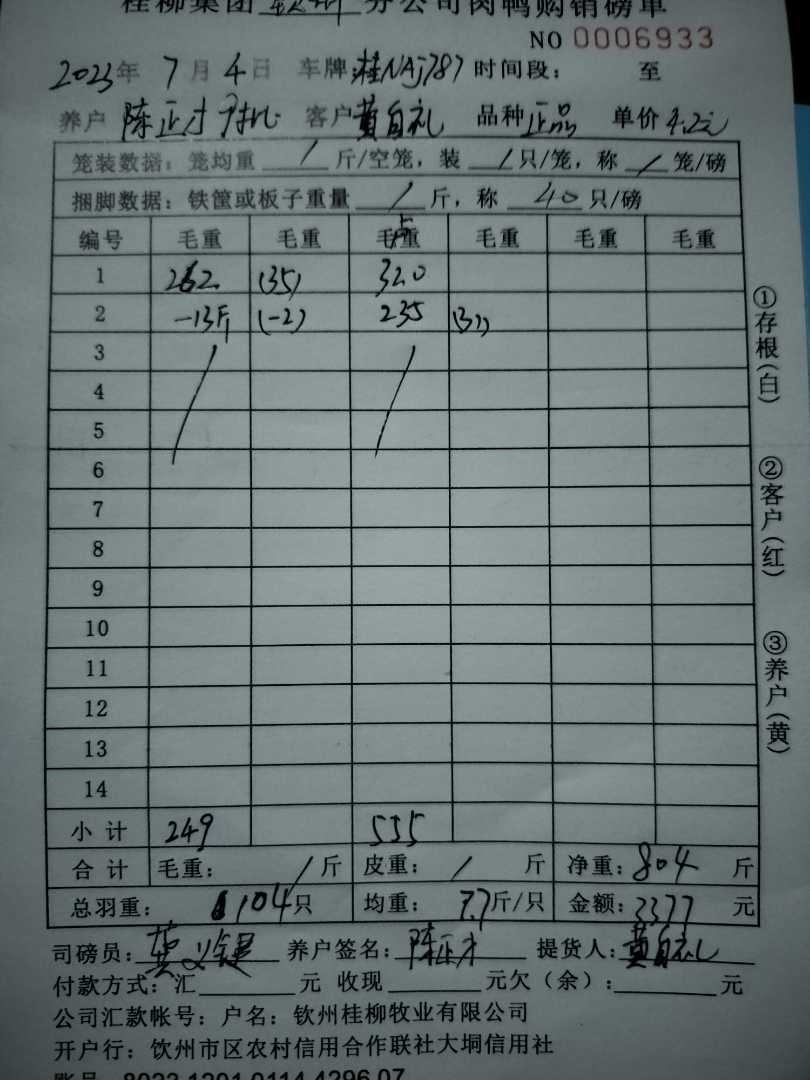 桂柳集团 钦州 分公司肉鸭购销磅单
NO 0006933
2023年 7月 4日 车牌:桂NAJ787 时间段: 至
养户 陈正才 客户 黄自礼 品种 正品 单价 4.2元
笼装数据:笼均重 / 斤/空笼,装 / 只/笼,称 / 笼/磅
捆脚数据:铁筐或板子重量 / 斤,称 40 只/磅
编号 毛重 毛重 毛重 毛重 毛重 毛重
1 262 (35) 320
2 -13斤 (-2) 235
3
4
5
6
7
8
9
10
11
12
13
14
小计 249 555
合计 毛重: / 斤 皮重: / 斤 净重:804 斤
总羽重: 104只 均重: 7.7斤/只 金额:3377 元
司磅员:黄义键 养户签名:陈正才 提货人:黄自礼
付款方式:汇 元 收现 元欠(余): 元
公司汇款帐号:户名:钦州桂柳牧业有限公司
开户行:钦州市区农村信用合作联社大垌信用社
账号 8023 1201 0114 4296 07
①存根(白)
②客户(红)
③养户(黄)